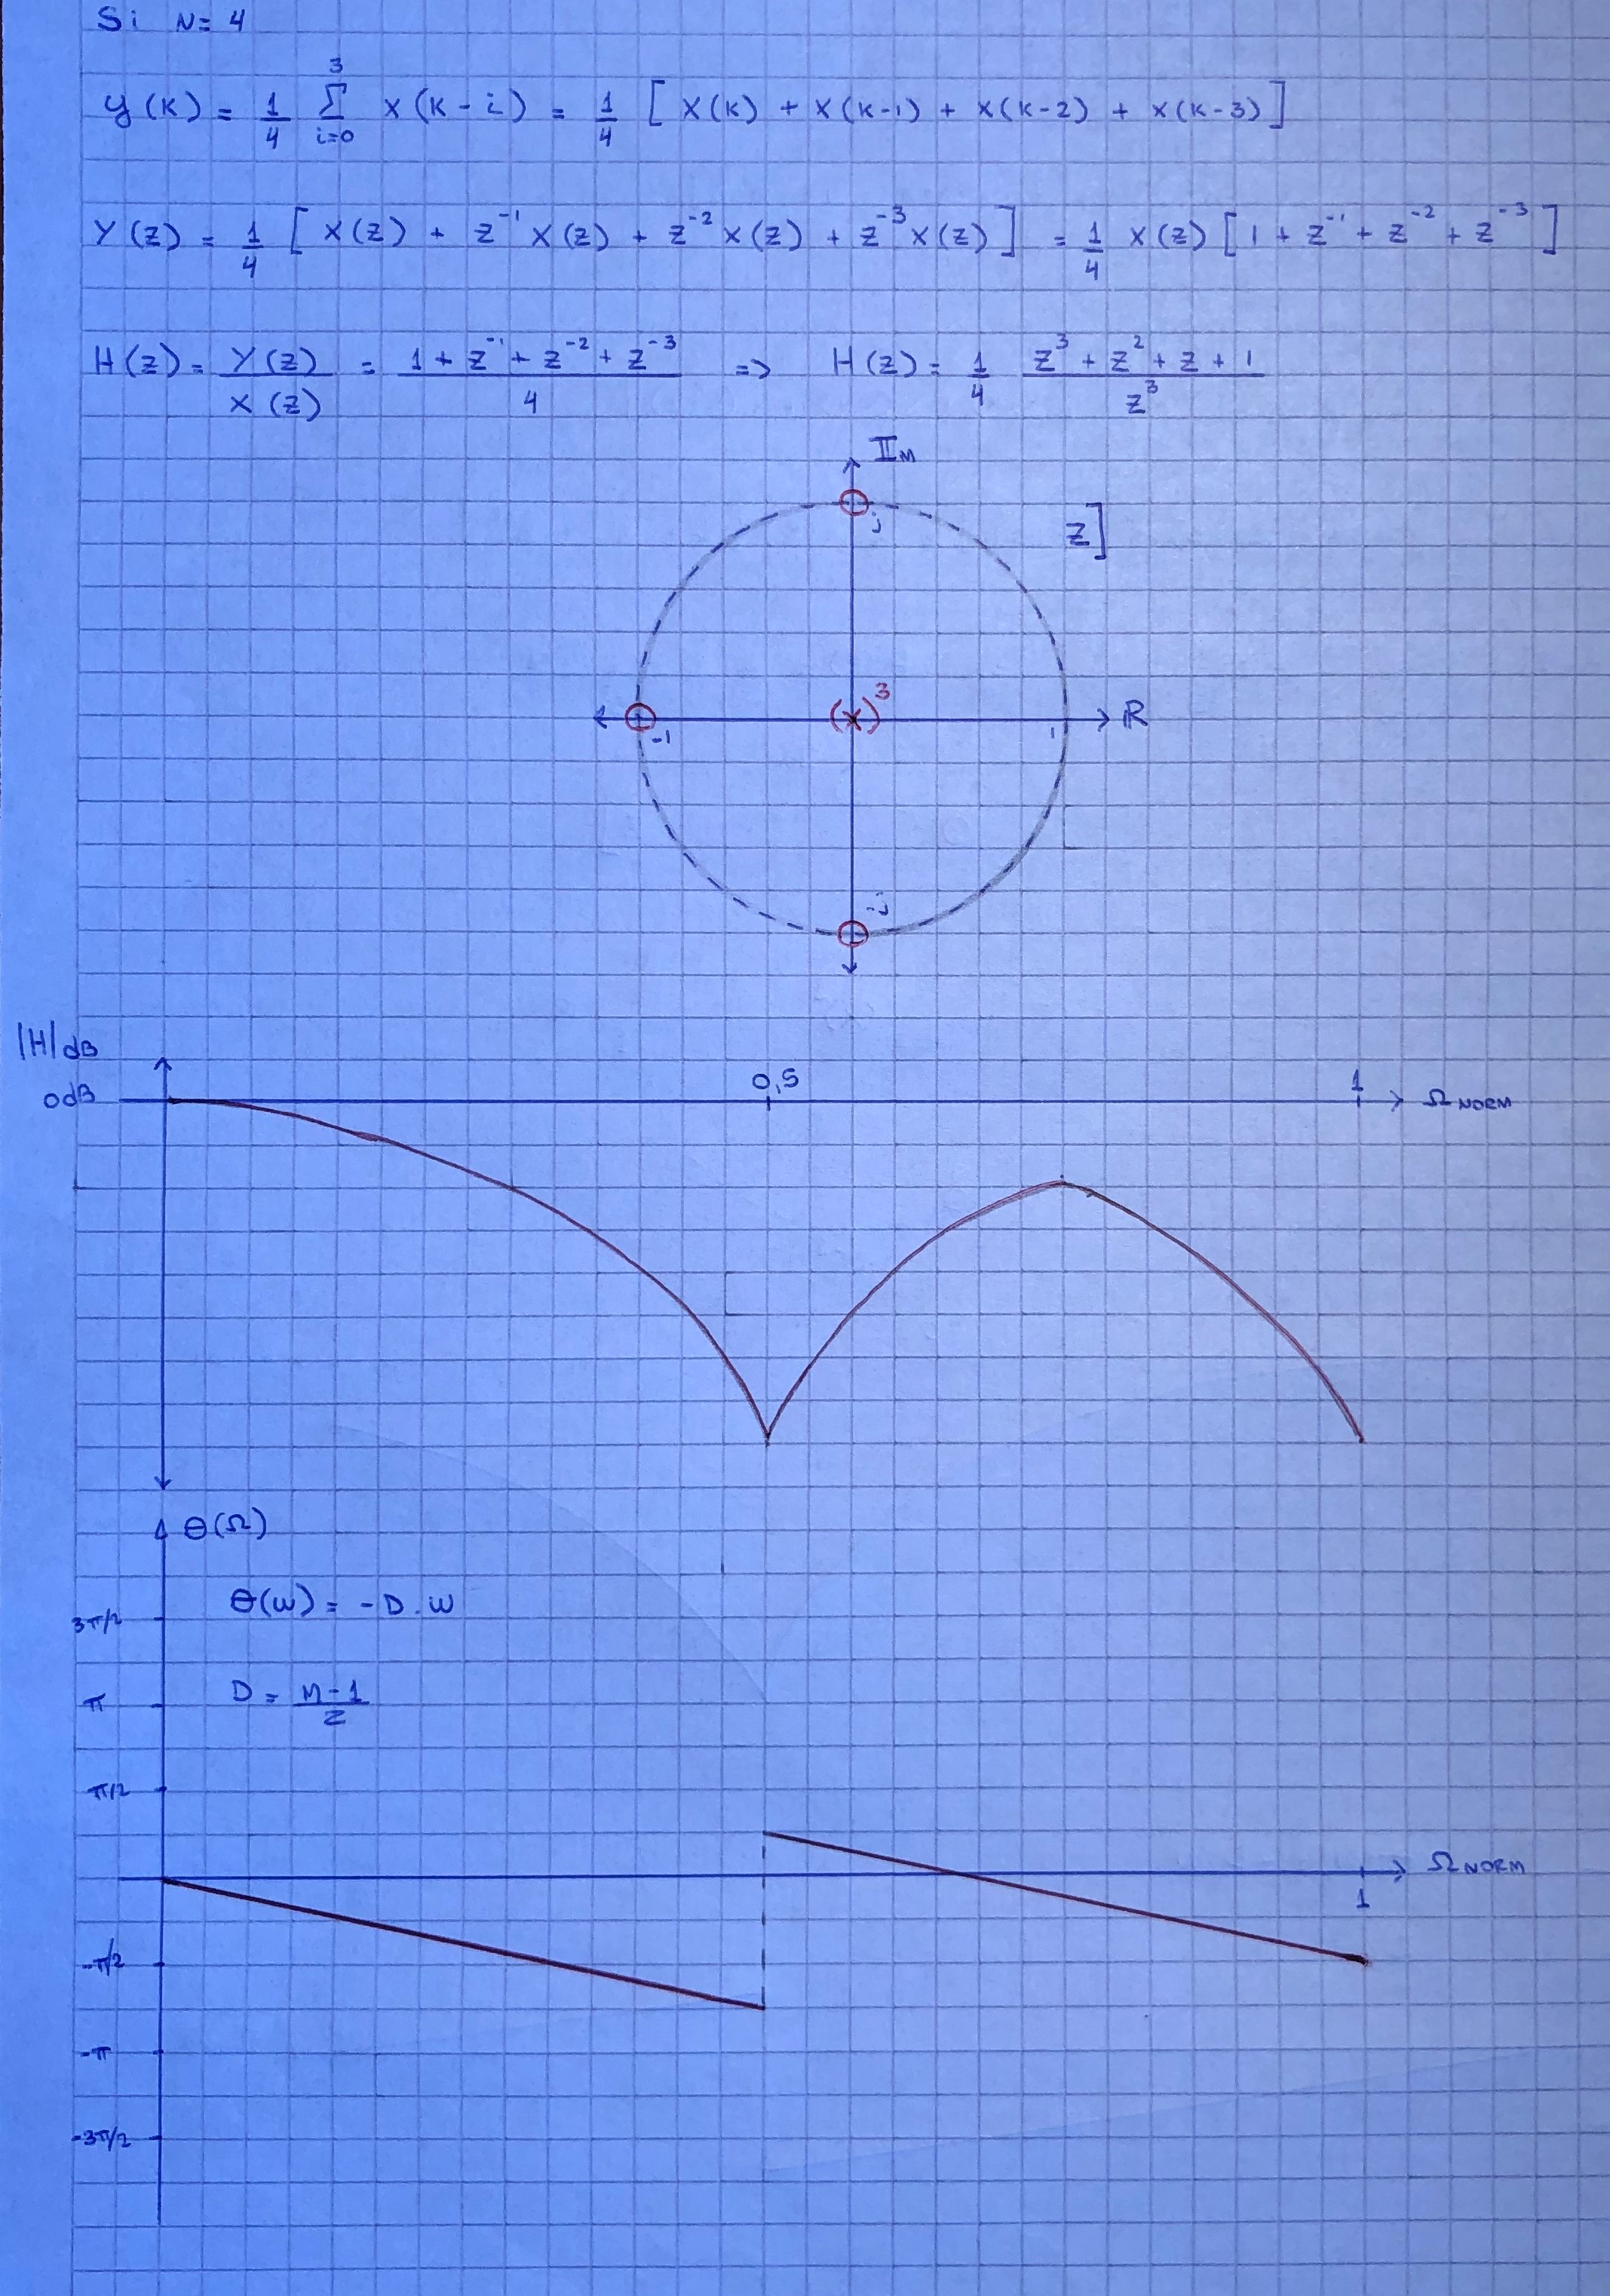 Si N= 4
y(k) = 1/4 3 Σ i=0 x(k-i) = 1/4 [ x(k) + x(k-1) + x(k-2) + x(k-3) ]
Y(z) = 1/4 [ X(z) + z^-1 X(z) + z^-2 X(z) + z^-3 X(z) ] = 1/4 X(z) [ 1 + z^-1 + z^-2 + z^-3 ]
H(z) = Y(z)/X(z) = (1 + z^-1 + z^-2 + z^-3)/4 => H(z) = 1/4 (z^3 + z^2 + z + 1)/z^3
IIM
j
z]
(x)^3
-1
1
R
-j
|H|dB
0dB
0,5
1
Ω NORM
θ(Ω)
θ(w) = -D.w
3π/2
D = (N-1)/2
π
π/2
Ω NORM
1
-π/2
-π
-3π/2